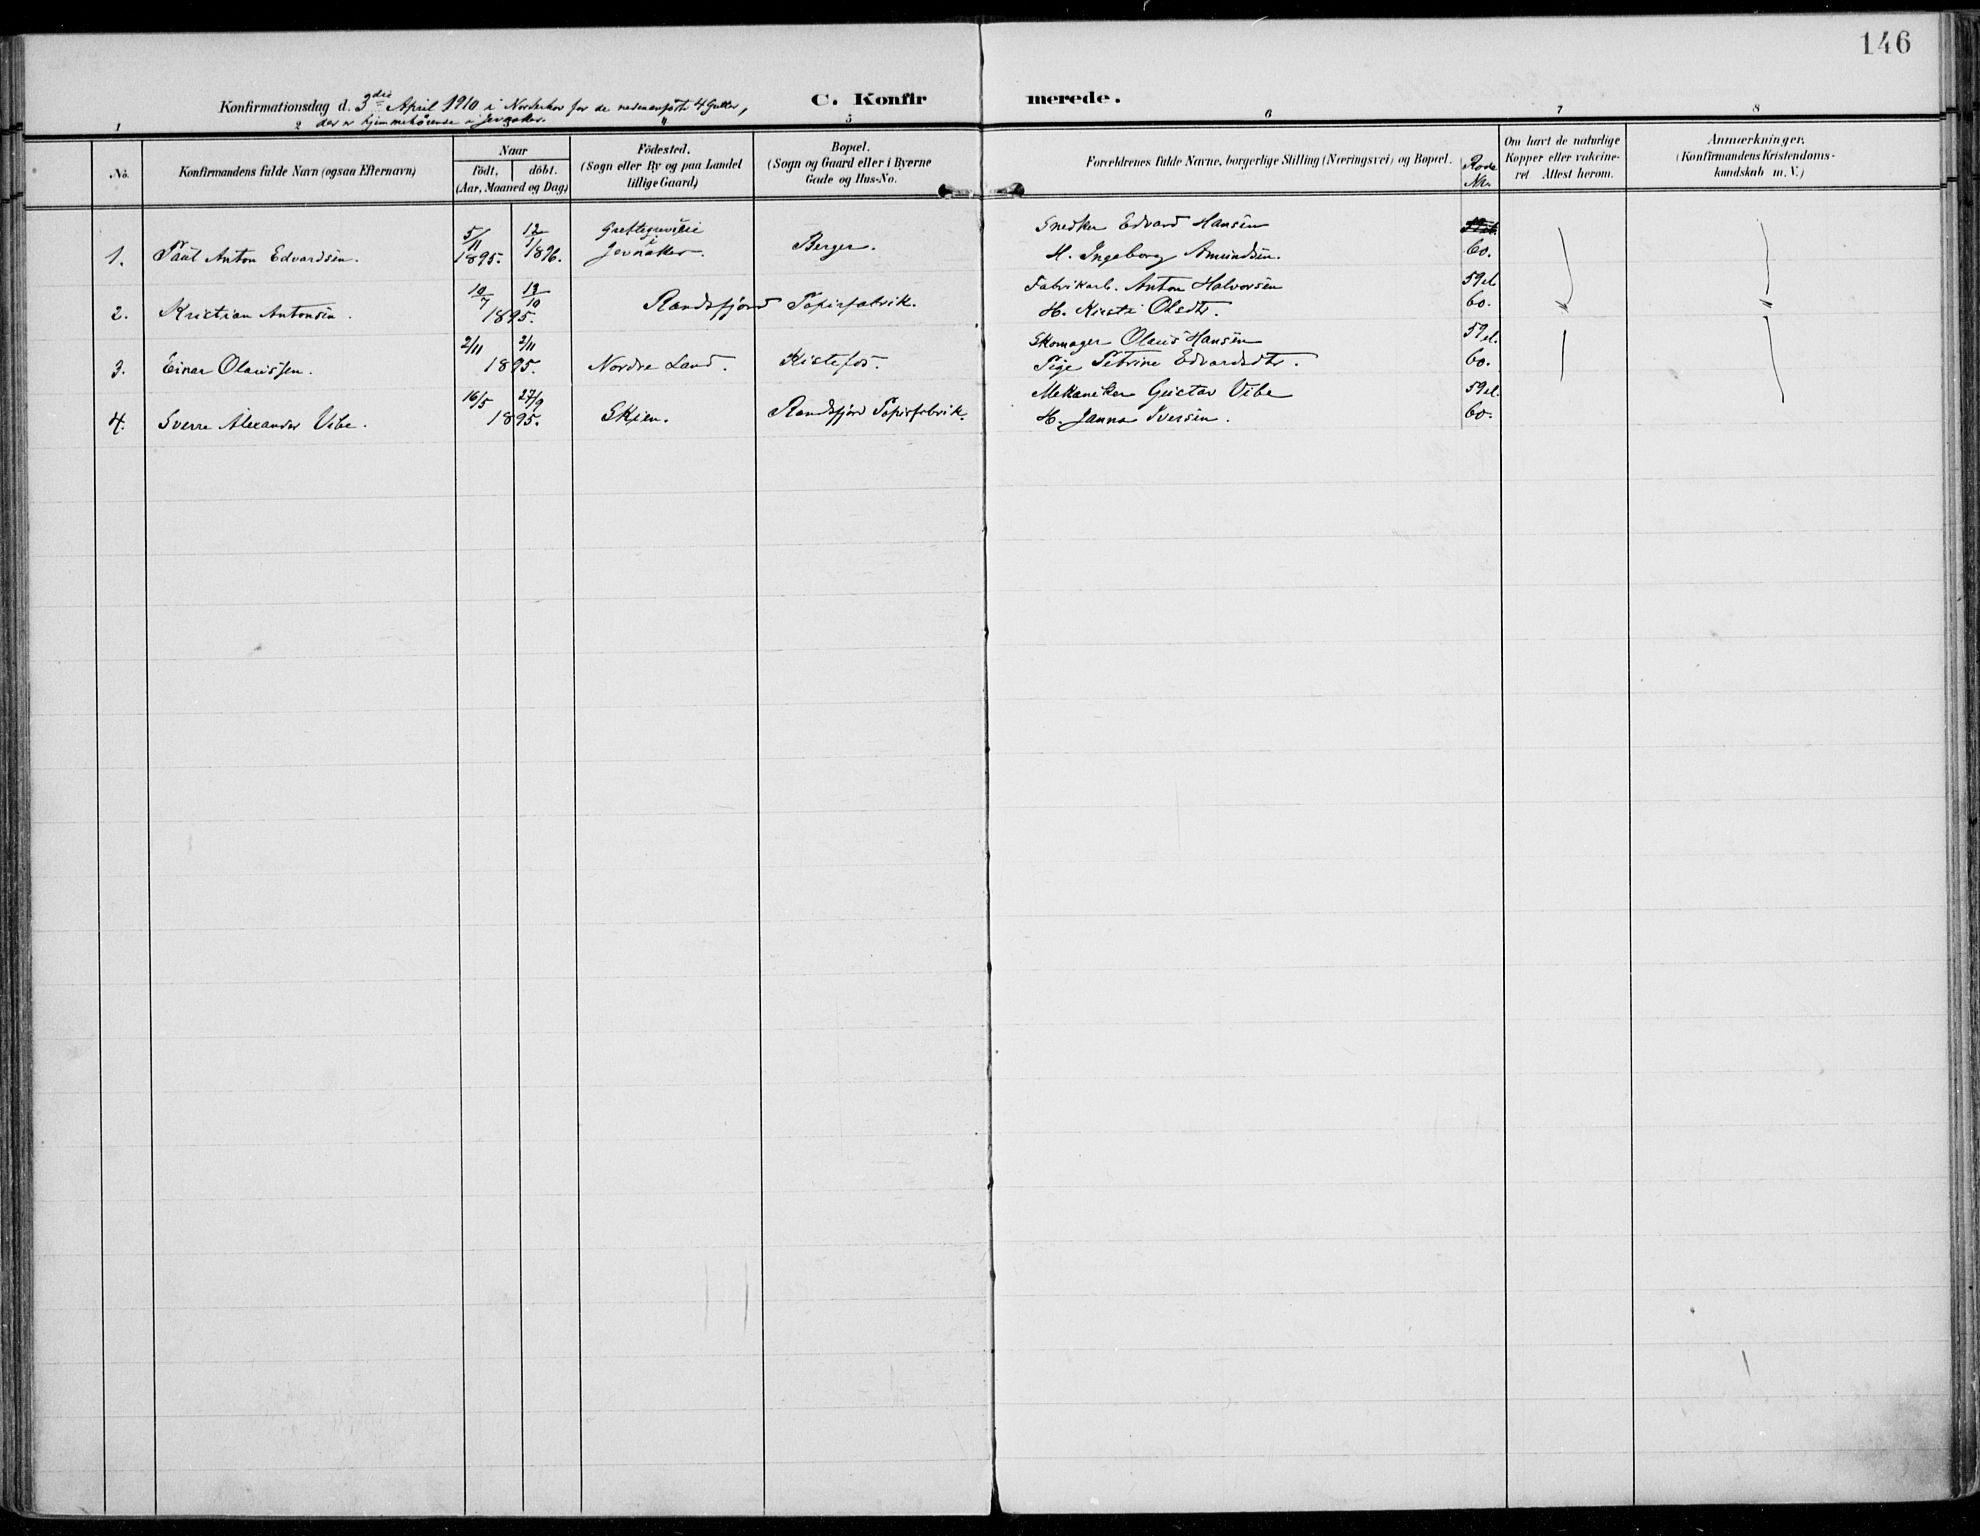 146
Konfirmationsdag d. 3die April 1910 i Norderhov for de nedenanførte 4 Gutter,
der er hjemmehørende i Jevnaker.
C. Konfirmerede.
1 2 3 4 5 6 7 8
No.
Konfirmandens fulde Navn (ogsaa Efternavn)
Naar
födt, döbt.
(Aar, Maaned og Dag)
Födested.
(Sogn eller By og paa Landet
tillige Gaard)
Bopæl.
(Sogn og Gaard eller i Byerne
Gade og Hus-No.
Forældrenes fulde Navne, borgerlige Stilling (Næringsvei) og Bopæl.
Rode
Nr.
Om havt de naturlige
Kopper eller vakcine-
ret Attest herom.
Anmærkninger.
(Konfirmandens Kristendoms-
kundskab m. V.)
1. Paul Anton Edvardsen. 5/11 1895. 12/1 1896. Jevnaker. Berger. Snedker Edvard Hansen
H. Ingeborg Amundsen. 60.
2. Kristian Antonsen. 10/7 13/10 1895. Randsfjord Papirfabrik. Fabrikarb. Anton Halvorsen 59 el.
H. Kirsti Olsdtr. 60.
3. Einar Olaussen. 2/11 3/11 1895. Nordre Land. Kistefos. Skomager Olaus Hansen 59 el.
Pige Petrine Edvardsdtr. 60.
4. Sverre Alexander Vibe. 16/5 27/9 1895. Skien. Randsfjord Papirfabrik. Mekaniker Gustav Vibe 59 el.
H. Janna Iversen. 60.